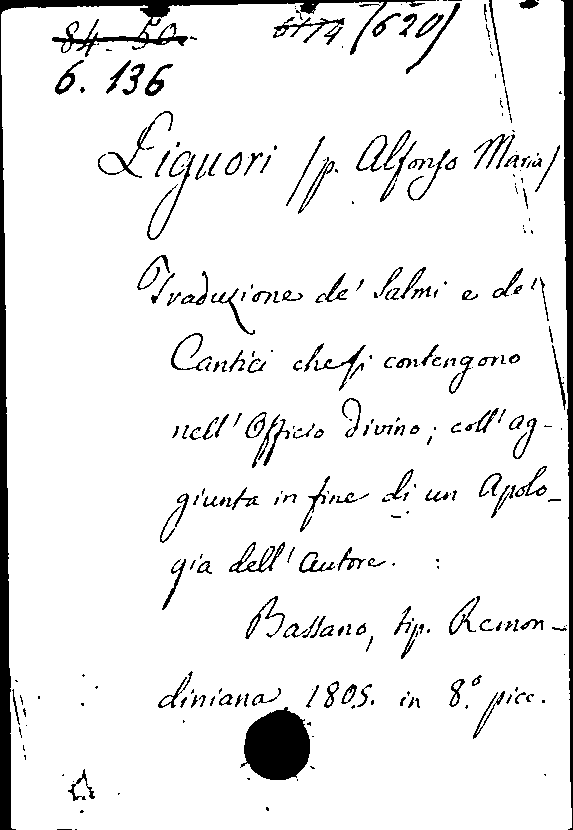 84. 50. 6174 (620)
6. 136
Liguori (p. Alfonso Maria)
Traduzione de' Salmi e de'
Cantici che si contengono
nell' Officio divino; coll' ag-
giunta in fine di un Apolo-
gia dell' autore.
Bassano, tip. Remon-
diniana, 1805. in 8.º picc.